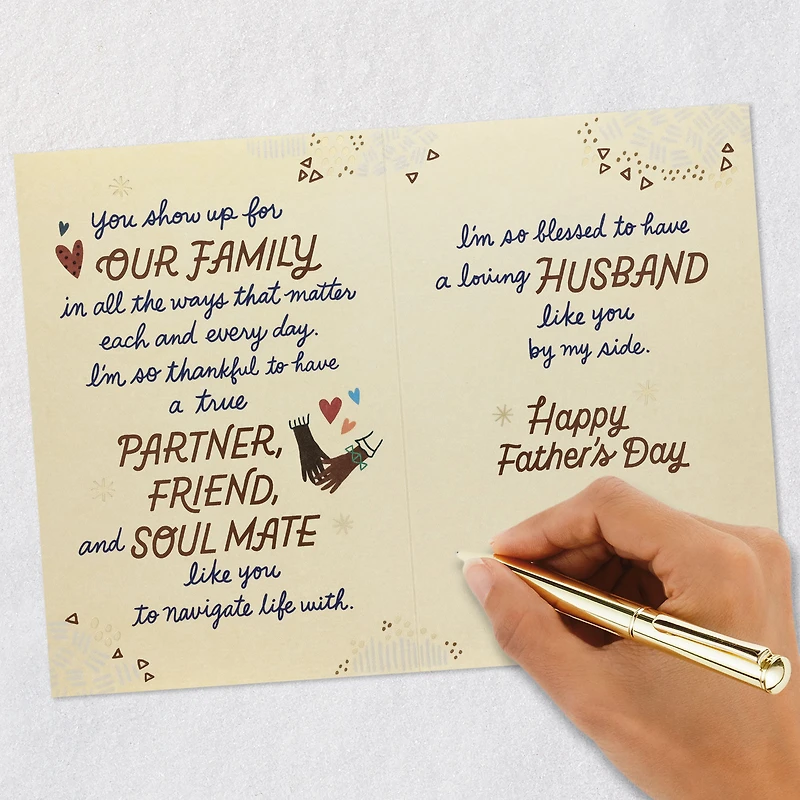 You show up for
OUR FAMILY
in all the ways that matter
each and every day.
I'm so thankful to have
a true
PARTNER,
FRIEND,
and SOUL MATE
like you
to navigate life with.
I'm so blessed to have
a loving HUSBAND
like you
by my side.
Happy
Father's Day